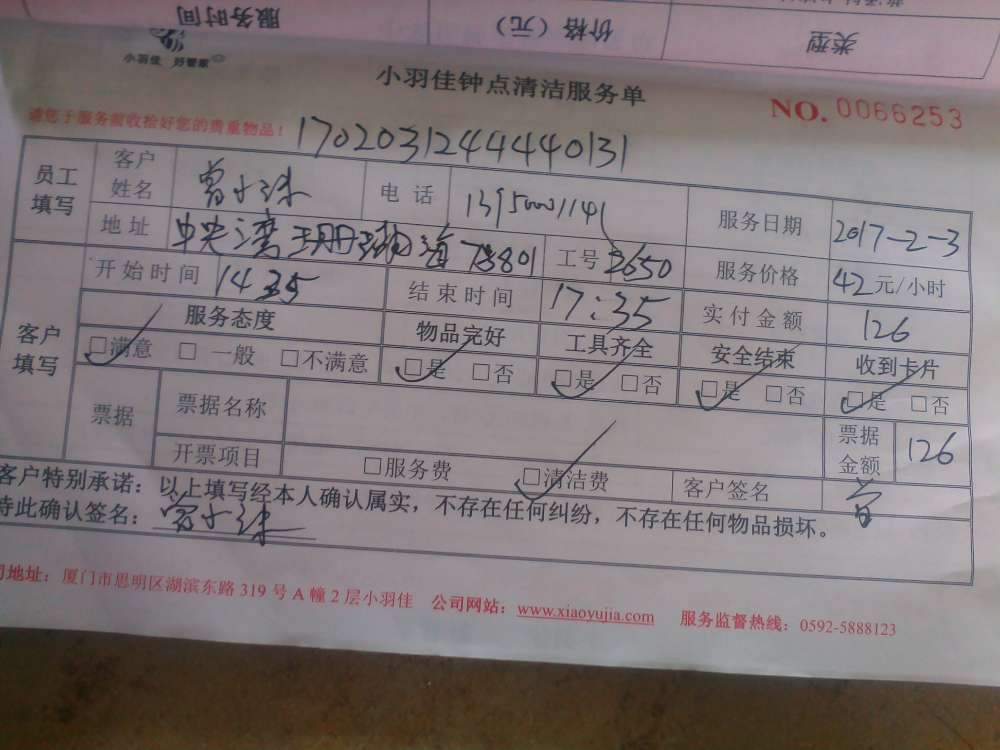 服务时间 价格（元） 类型
小羽佳 好管家
小羽佳钟点清洁服务单
NO. 0066253
请您于服务前收捡好您的贵重物品！
17020312444440131
员工填写 客户姓名 曾小珠 电话 13950001141 服务日期 2017-2-3
地址 中央湾珊瑚海 工号 2650 服务价格 42 元/小时
客户填写 开始时间 1435 结束时间 17:35 实付金额 126
服务态度 物品完好 工具齐全 安全结束 收到卡片
□满意 □一般 □不满意 □是 □否 □是 □否 □是 □否 □是 □否
票据 票据名称 票据金额 126
开票项目 □服务费 □清洁费 客户签名 曾
客户特别承诺：以上填写经本人确认属实，不存在任何纠纷，不存在任何物品损坏。
特此确认签名：曾小珠
司地址：厦门市思明区湖滨东路 319 号 A 幢 2 层小羽佳 公司网站：www.xiaoyujia.com 服务监督热线：0592-5888123